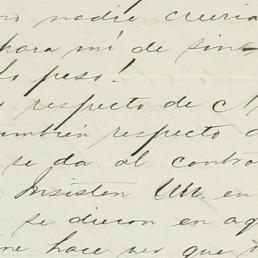 no nadie creeria
ahora mí de sin-
lo peso!
respecto de
también respecto
se da al contra
Insisten UU. en
se dieron en aq
me hace ver que